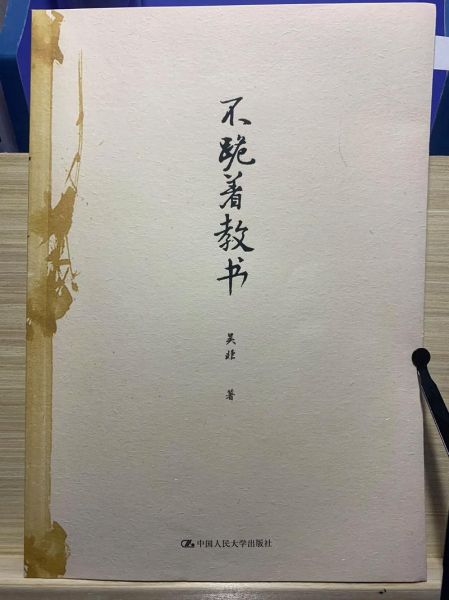 不跪着教书
吴非 著
中国人民大学出版社